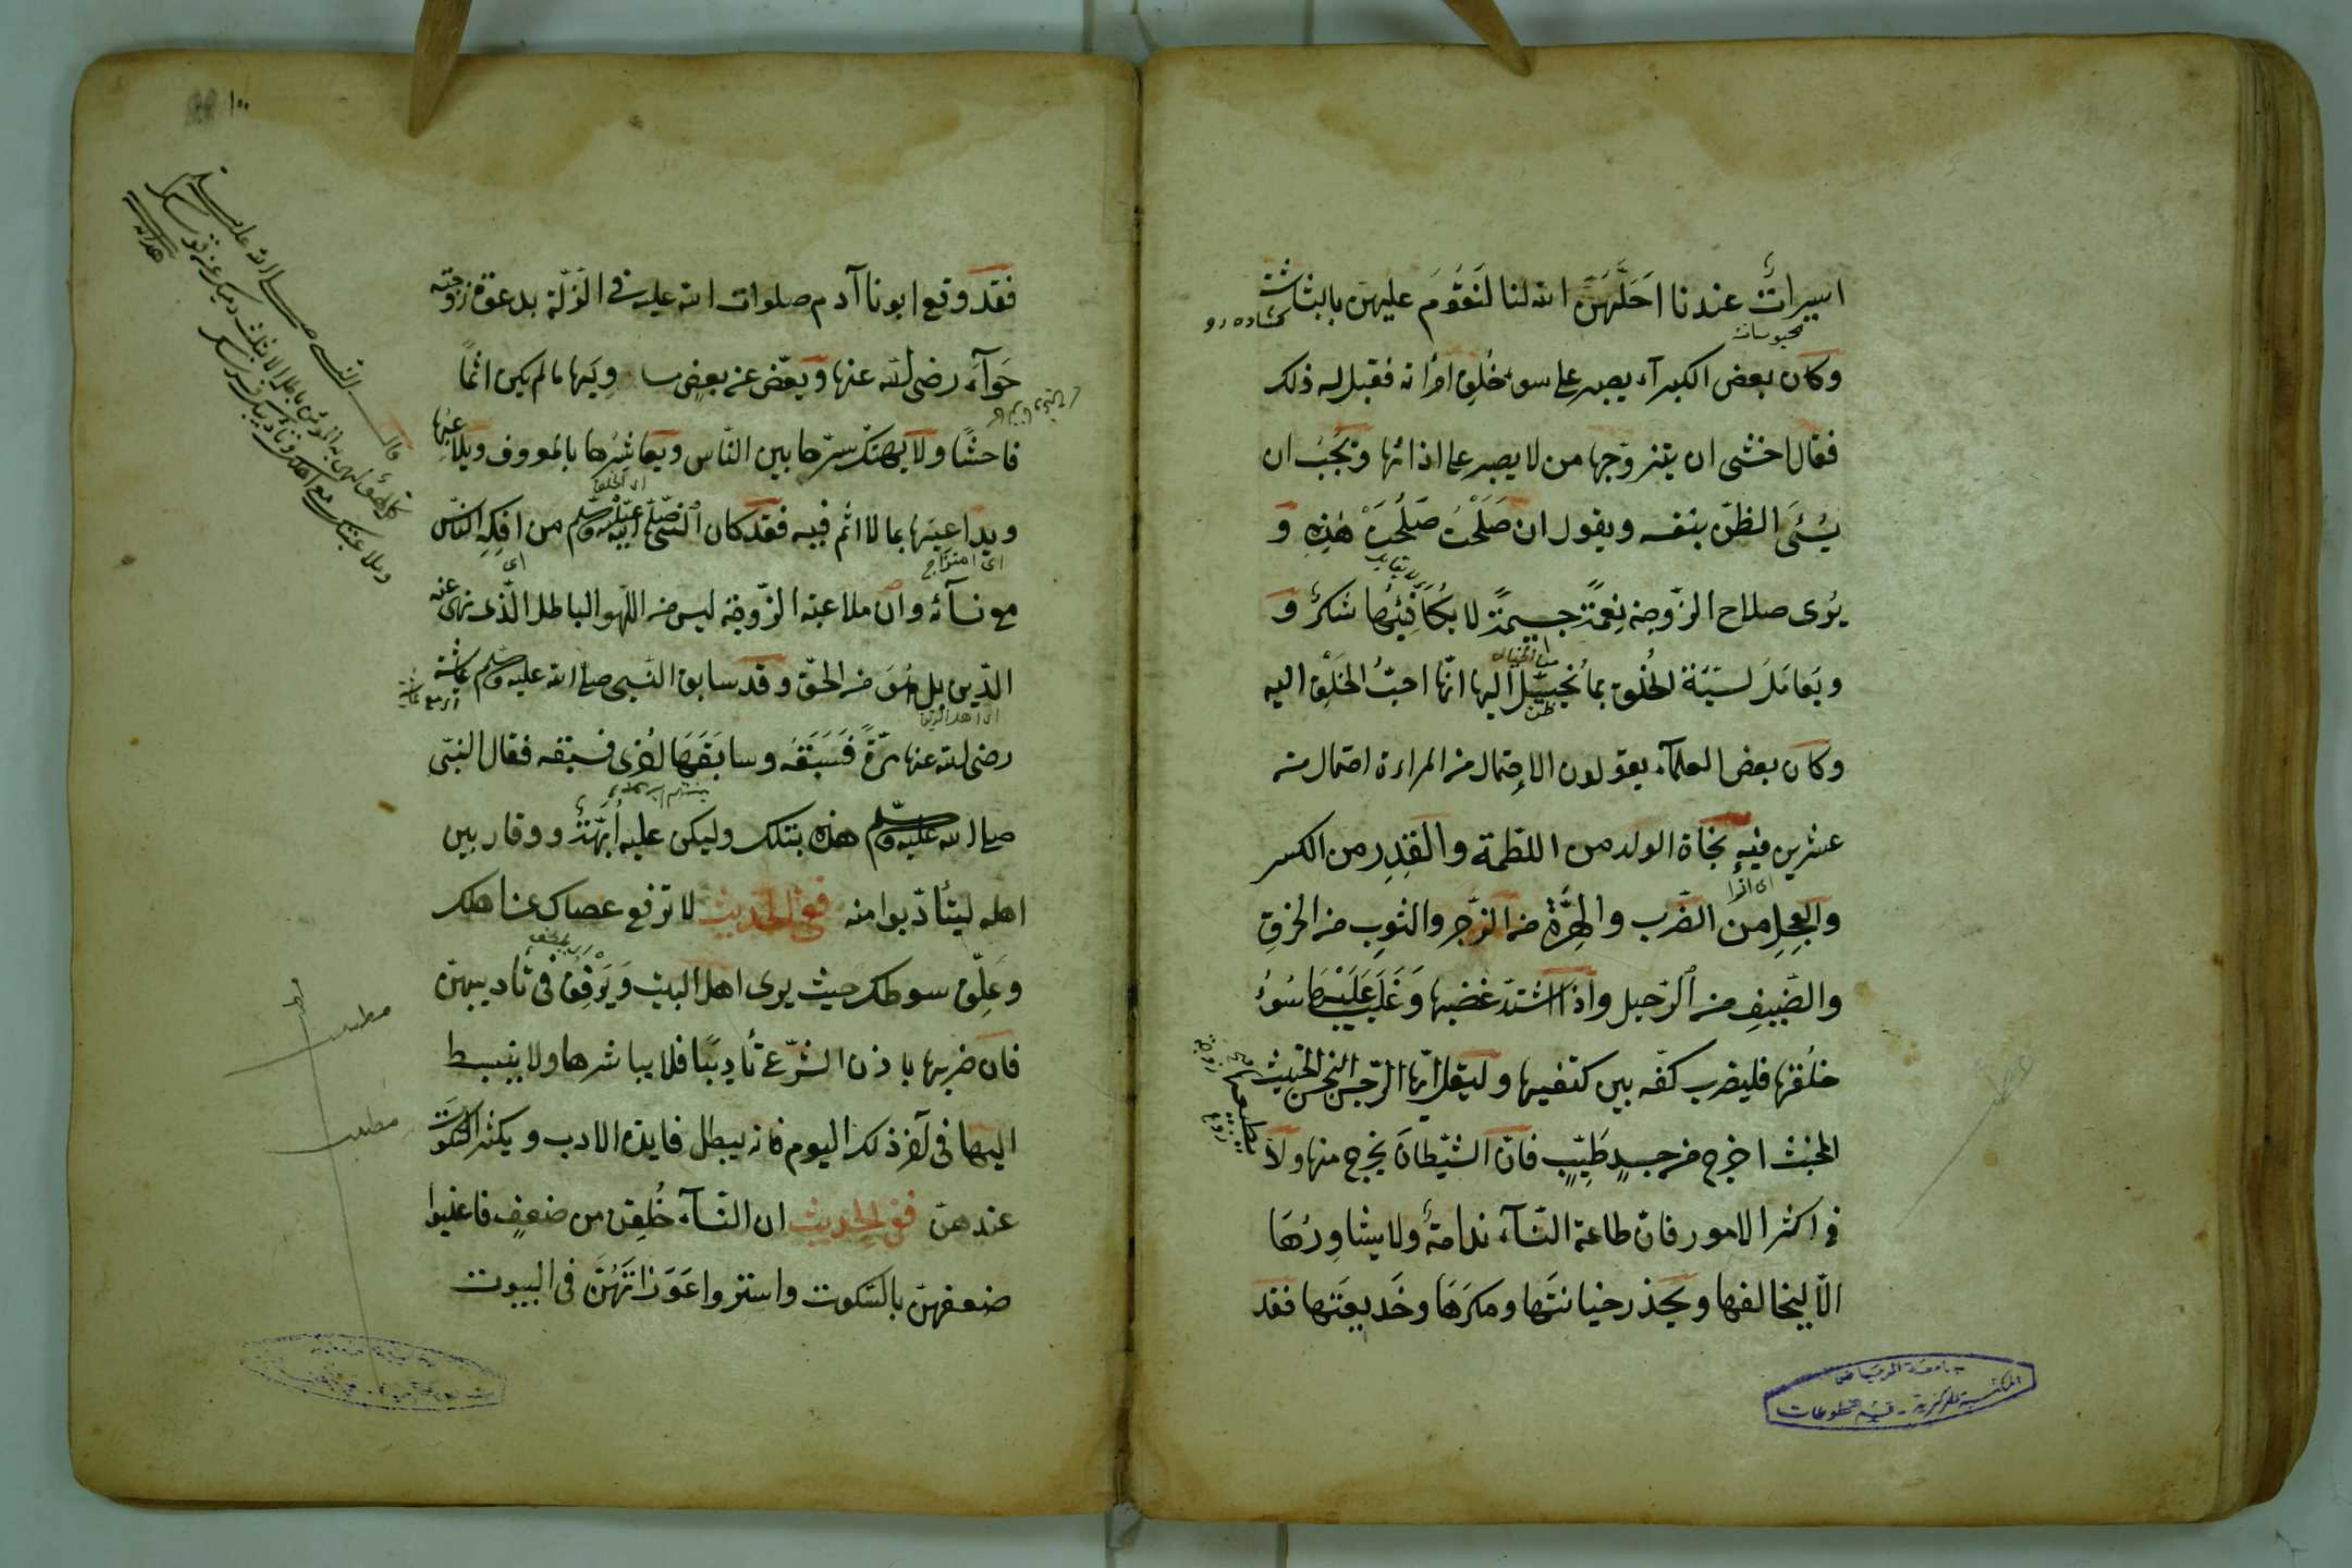 اسيراتٌ عندنا احَلَّهُنَّ الله لنا لنَقُومَ عليهنّ بالبشاشة
محبوسات
كشاده رو
وكان بعض الكبرآء يصبر على سوء خُلِق امرأته فقيل له ذلك
فقال اخشى ان يتزوّجها من لا يصبر على اذائها ويَجُبُ ان
يُسْئَى الظنّ بنفسه ويقول ان صَلَحْتُ صَلُحَتْ هٰذِهِ و
يُرى صلاح الزّوجة نِعمَةً جسيمَةً لا يُكَافِئُها شكرٌ و
ويَعَامَلُ لسَيّئة الخُلُق بما يُخيّل اليها انّها احبُّ الخَلْقِ اليه
ظن
وكان بعض العلمآء يقولون الاِحتمال من المراءة احتمال من
عشرين فيه نجاة الولد من اللّطمة والقِدِر من الكسر
والعِجِلِ من الضّرب والهِرَّة من الزّجر والثوبِ من الخرق
والضّيفِ من الرّحيل واذا اشتدّ غضبها وَغَلَبَ عَلَيْهَا سُوءُ
خلُقها فليضرب كفّه بين كتفيها وليقل ايّها الرّجس النّجس الخبيث
المخبث اخرج من جسدٍ طَيِّبٍ فانّ الشّيطانَ يخرج منها ولا يطيعها
زوج
زوجة
فى اكثر الامور فانّ طاعة النّسآء ندامةٌ ولا يشاوِرُهَا
الّا ليخالفها ويحذر خيانتَها ومكرَهَا وخَديعَتَها فقد
جامعة الرياض
المكتبة المركزية - قسم المخطوطات
١٠٠
فقد وقع ابونا آدم صلوات الله عليه فى الزّلّة بدعوة زوجته
حَوآء رضى الله عنها ويغضّ عن بعض مساويَها ما لم يكن اثماً
فاحشًا ولا يهتك سترها بين النّاس ويعاشِرُها بالمعروف ويلاعِبُها
ويداعبَها بما لا اثم فيه فقد كان النّبىّ صلى الله عليه وسلم من افكِهِ النّاس
اى امتزاج
اى
مع نسآئه وانّ ملاعبة الزّوجة ليس من اللّهو الباطل الّذى نهى عنه
الدّين بل هو من الحقّ وقد سابق النّبى صلى الله عليه وسلم عايشة
رضى الله عنها مرّةً فَسَبَقَتْه وسابَقَهَا اُخرى فسبقه فقال النبّى
صلى الله عليه وسلم هذه بتلك وليكن عليه اُبّهَةٌ ووقار بين
اهله ليتأدّبوا منه ففى الحديث لا ترفع عصاك عن اهلك
وعَلِّق سوطك حيث يرى اهل البيت وَيَرْفِقُ فى تأديبهنّ
فان ضربها باذن الشّرع تأديبًا فلا يباشرها ولا ينبسط
اليها فى آخر ذلك اليوم فانه يبطل فايدة الادب ويكثر السّكوت
عندهنّ ففى الحديث ان النّسآء خُلِقن من ضعفٍ فاغلبوا
ضعفهنّ بالسّكوت واستروا عَوَرَاتَهُنّ فى البيوت
مطلب
مطلب